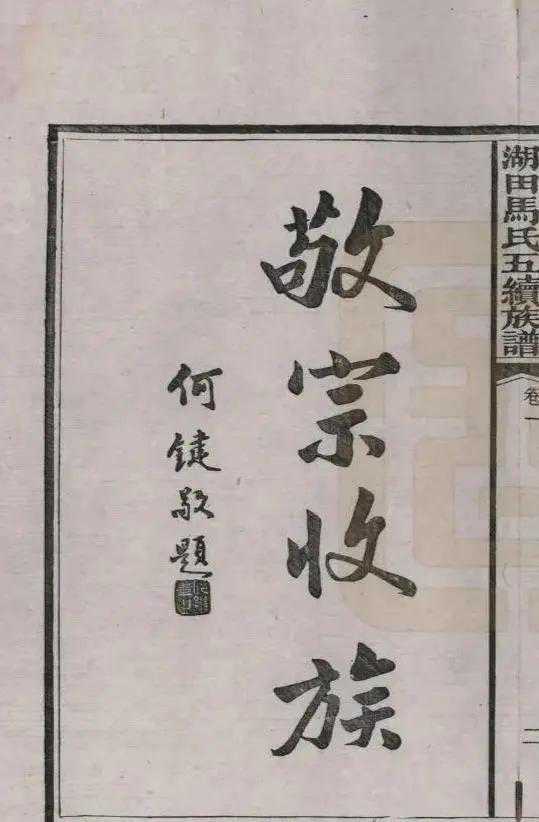 湖田馬氏五續族譜
卷一
二
敬宗收族
何鍵敬題